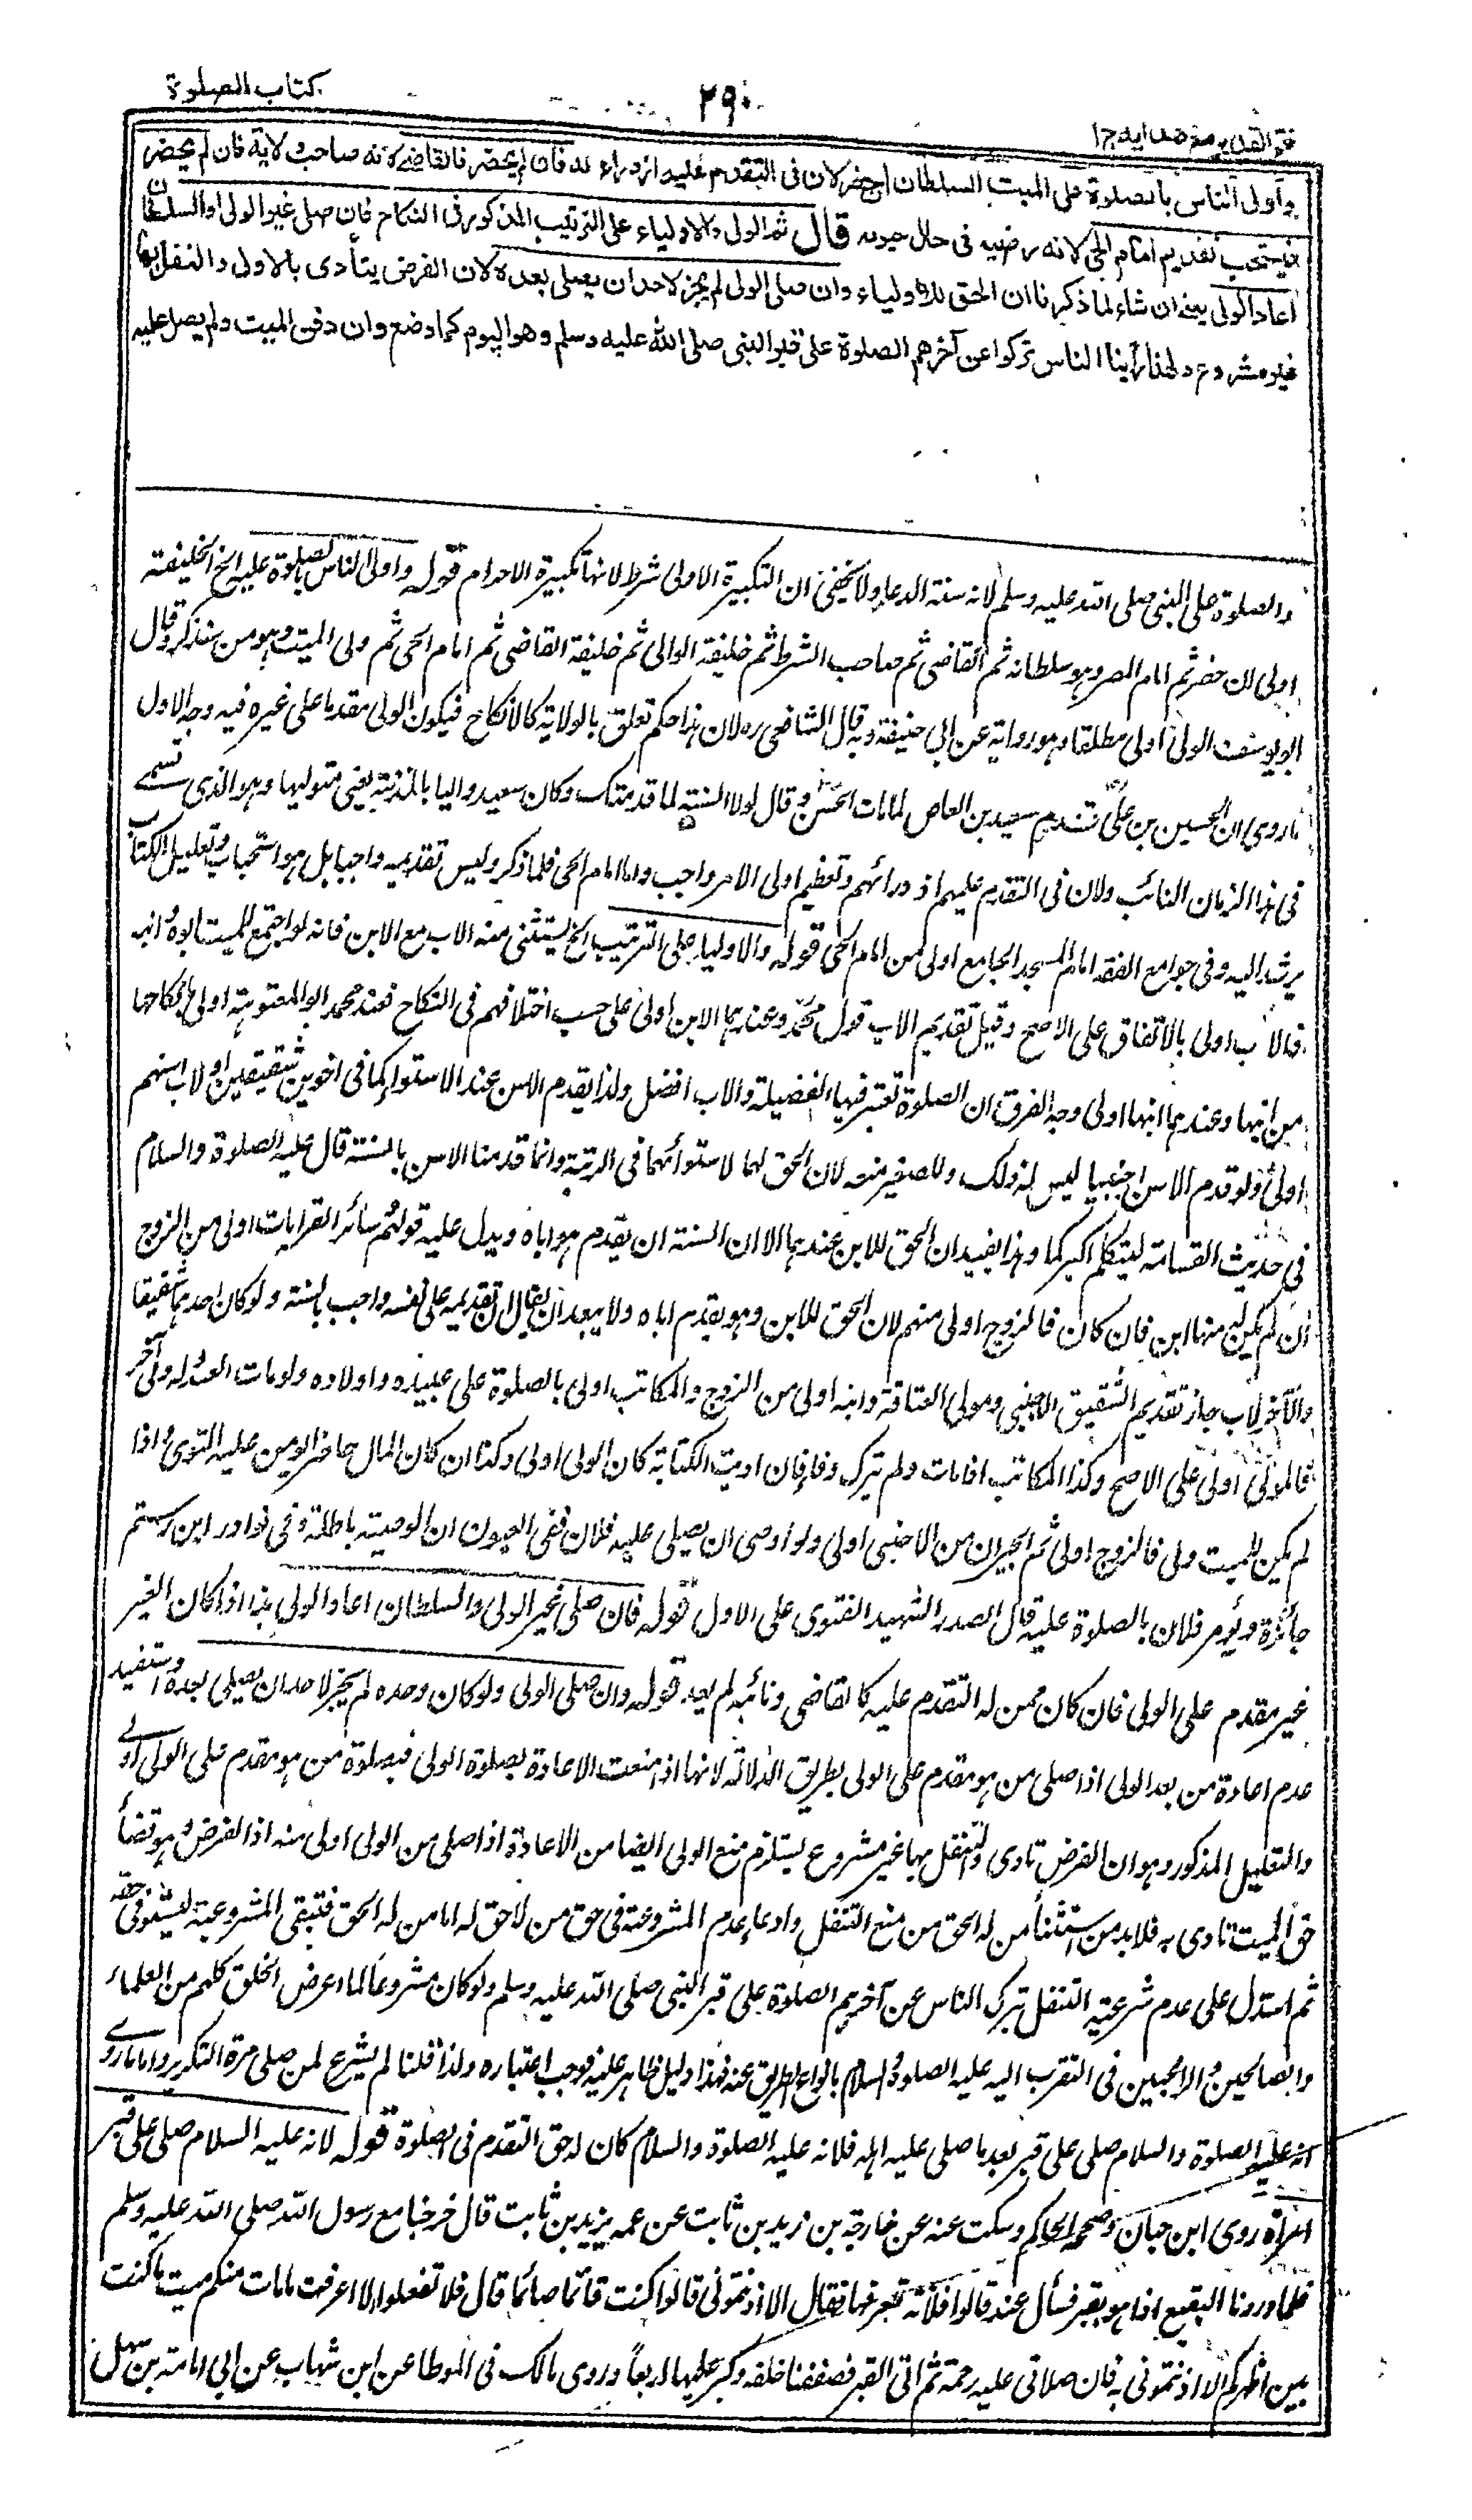 فتح القدير مع هدايه ج ا
۲۹۰
كتاب الصلوة
وأولى الناس بالصلوة على الميت السلطان ان حضر لان فى التقدم عليه ازدراء به فان لم يحضر فالقاضي لانه صاحب ولاية فان لم يحضر
فيستحب تقديم امام الحى لانه رضيه فى حال حيوته قال ثم الولى والاولياء على الترتيب المذكور فى النكاح فان صلى غير الولى او السلطان
اعاد الولى يعنى ان شاء لما ذكرنا ان الحق للاولياء وان صلى الولى لم يجز لاحد ان يصلى بعده لان الفرض يتأدى بالاولى والنفل بها
غير مشروع ولهذا رأينا الناس تركوا عن آخرهم الصلوة على قبر النبى صلى الله عليه وسلم وهو اليوم كما وضع وان دفن الميت ولم يصل عليه
والصلوة على النبى صلى الله عليه وسلم لانه سنة الدعاء ولا يخفى ان التكبيرة الاولى شرط لانها تكبيرة الاحرام قوله واولى الناس بالصلوة عليه الخ الخليفة
اولى ان حضر ثم امام المصر وهو سلطانه ثم القاضى ثم صاحب الشرط ثم خليفة الوالى ثم خليفة القاضى ثم امام الحى ثم ولى الميت وهو من سنذكر وقال
ابو يوسف الولى اولى مطلقا وهو رواية عن ابى حنيفة وبه قال الشافعى ره لان هذا حكم تعلق بالولاية كالانكاح فيكون الولى مقدما على غيره فيه وجه الاول
ما روى ان الحسين بن على قدم سعيد بن العاص لما مات الحسن وقال لولا السنة لما قدمتك وكان سعيد واليا بالمدينة يعنى متوليها وهو الذى تسمى
فى هذا الزمان النائب ولان فى التقدم عليهم ازدرائهم وتعظيم اولى الامر واجب واما امام الحى فلما ذكر وليس تقديمه واجبا بل هو استحباب وتعليل الكتاب
يرشد اليه وفى جوامع الفقه امام المسجد الجامع اولى من امام الحى قوله والاولياء على الترتيب الخ يستثنى منه الاب مع الابن فانه لو اجتمع للميت ابوه وابنه
فالاب اولى بالاتفاق على الاصح وقيل تقديم الاب قول محمد وعندهما الابن اولى على حسب اختلافهم فى النكاح فعند محمد ابو المعتوهة اولى بانكاحها
من ابنها وعندهما ابنها اولى وجه الفرق ان الصلوة تعتبر فيها الفضيلة والاب افضل ولذا يقدم الاسن عند الاستواء كما فى اخوين شقيقين او لاب اسنهم
اولى ولو قدم الاسن اجنبيا ليس له ذلك وللصغير منعه لان الحق لهما لاستوائهما فى الرتبة وانما قدمنا الاسن بالسنة قال عليه الصلوة والسلام
فى حديث القسامة ليتكلم اكبركما وهذا يفيد ان الحق للابن عندهما الا ان السنة ان يقدم هو اباه ويدل عليه قولهم سائر القرابات اولى من الزوج
ان لم يكن له منها ابن فان كان فالزوج اولى منهم لان الحق للابن وهو يقدم اباه ولا يبعد ان يقال ان تقديمه على نفسه واجب بالسنة ولو كان احدهما شقيقا
والآخر لاب جاز تقديم الشقيق الاجنبى ومولى العتاقة وابنه اولى من الزوج والمكاتب اولى بالصلوة على عبيده واولاده ولو مات العبد وله ولى آخر
فالمولى اولى على الاصح وكذا المكاتب اذا مات ولم يترك وفاء فان اديت الكتابة كان الولى اولى وكذا ان كان المال حاضرا يؤمن عليه التوى واذا
لم يكن للميت ولى فالزوج اولى ثم الجيران من الاجنبى اولى ولو اوصى ان يصلى عليه فلان ففى العيون ان الوصية باطلة وفى نوادر ابن رستم
جائزة ويؤمر فلان بالصلوة عليه قال الصدر الشهيد الفتوى على الاول قوله فان صلى غير الولى والسلطان اعاد الولى هذا اذا كان الغير
غير مقدم على الولى فان كان ممن له التقدم عليه كالقاضى ونائبه لم يعد قوله وان صلى الولى ولو كان وحده لم يجز لاحد ان يصلى بعده واستفيد
عدم اعادة من بعد الولى اذا صلى من هو مقدم على الولى بطريق الدلالة لانها اذا منعت الاعادة بصلوة الولى فبصلوة من هو مقدم على الولى اولى
والتعليل المذكور وهو ان الفرض تادى والتنفل بها غير مشروع يستلزم منع الولى ايضا من الاعادة اذا صلى من الولى اولى منه اذ الفرض وهو قضاء
حق الميت تادى به فلا بد من استثناء من له الحق من منع التنفل وادعاء عدم المشروعية فى حق من لا حق له اما من له الحق فتبقى المشروعية ليستوفى حقه
ثم استدل على عدم شرعية التنفل بترك الناس عن آخرهم الصلوة على قبر النبى صلى الله عليه وسلم ولو كان مشروعا لما اعرض الخلق كلهم من العلماء
والصالحين والراغبين فى التقرب اليه عليه الصلوة والسلام بانواع الطرق عنه فهذا دليل ظاهر عليه فوجب اعتباره ولذا قلنا لم يشرع لمن صلى مرة التكرير واما ما روى
انه عليه الصلوة والسلام صلى على قبر بعد ما صلى عليه اهله فلانه عليه الصلوة والسلام كان له حق التقدم فى الصلوة قوله لانه عليه السلام صلى على قبر
امرأة روى ابن حبان وصححه الحاكم وسكت عنه عن خارجة بن زيد بن ثابت عن عمه يزيد بن ثابت قال خرجنا مع رسول الله صلى الله عليه وسلم
فلما وردنا البقيع اذا هو بقبر فسأل عنه قالوا فلانة فعرفها فقال الا اذنتمونى قالوا كنت قائما صائما قال فلا تفعلوا لا اعرفن ما مات منكم ميت ما كنت
بين اظهركم الا اذنتمونى به فان صلاتى عليه رحمة ثم اتى القبر فصففنا خلفه وكبر عليها اربعا وروى مالك فى الموطا عن ابن شهاب عن ابى امامة بن سهل